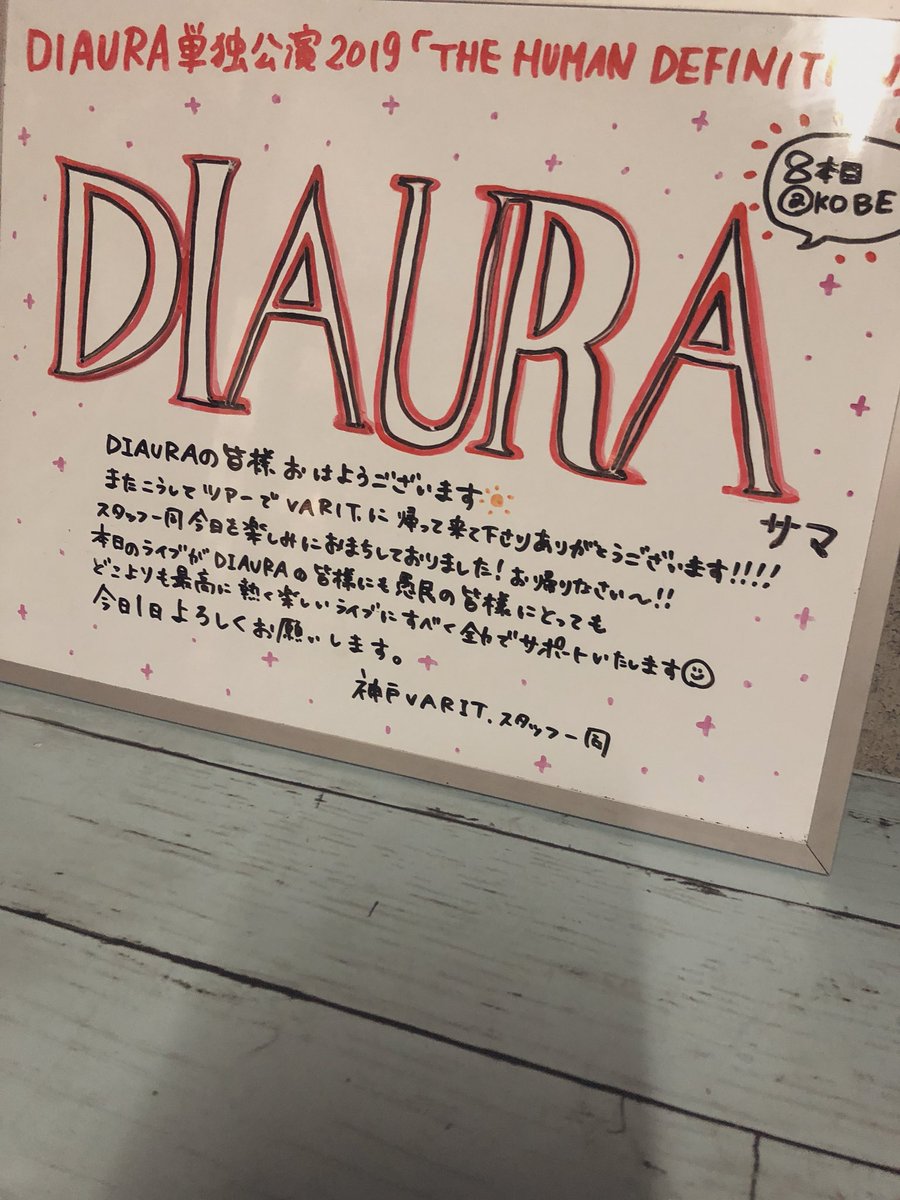 DIAURA単独公演2019「THE HUMAN DEFINIT
8本目
@KOBE
DIAURA
サマ
DIAURAの皆様 おはようございます
またこうして ツアーで VARIT.に 帰って来て下さりありがとうございます!!!!
スタッフ一同 今日を楽しみにおまちしておりました! お帰りなさい〜!!
本日のライブが DIAURAの皆様にも 愚民の皆様にとっても
どこよりも最高に 熱く楽しい ライブにすべく 全力でサポートいたします
今日1日よろしくお願いします。
神戸VARIT.スタッフ一同